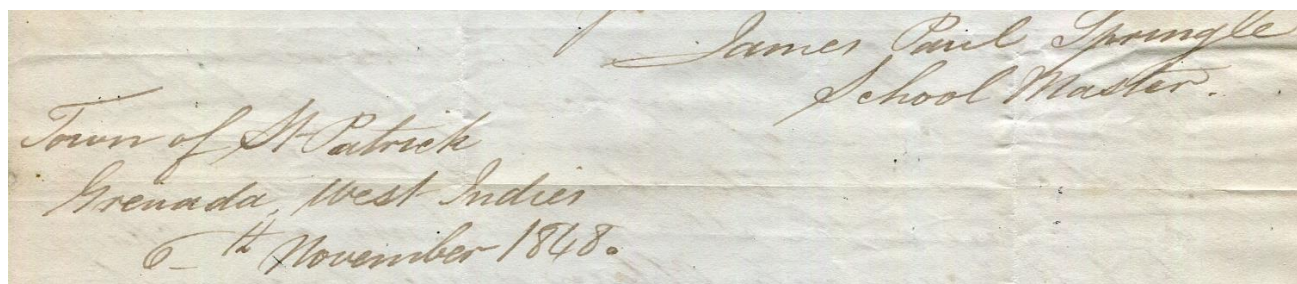 James Paul Springle
School Master.
Town of St Patrick
Grenada, West Indies
6th November 1848.